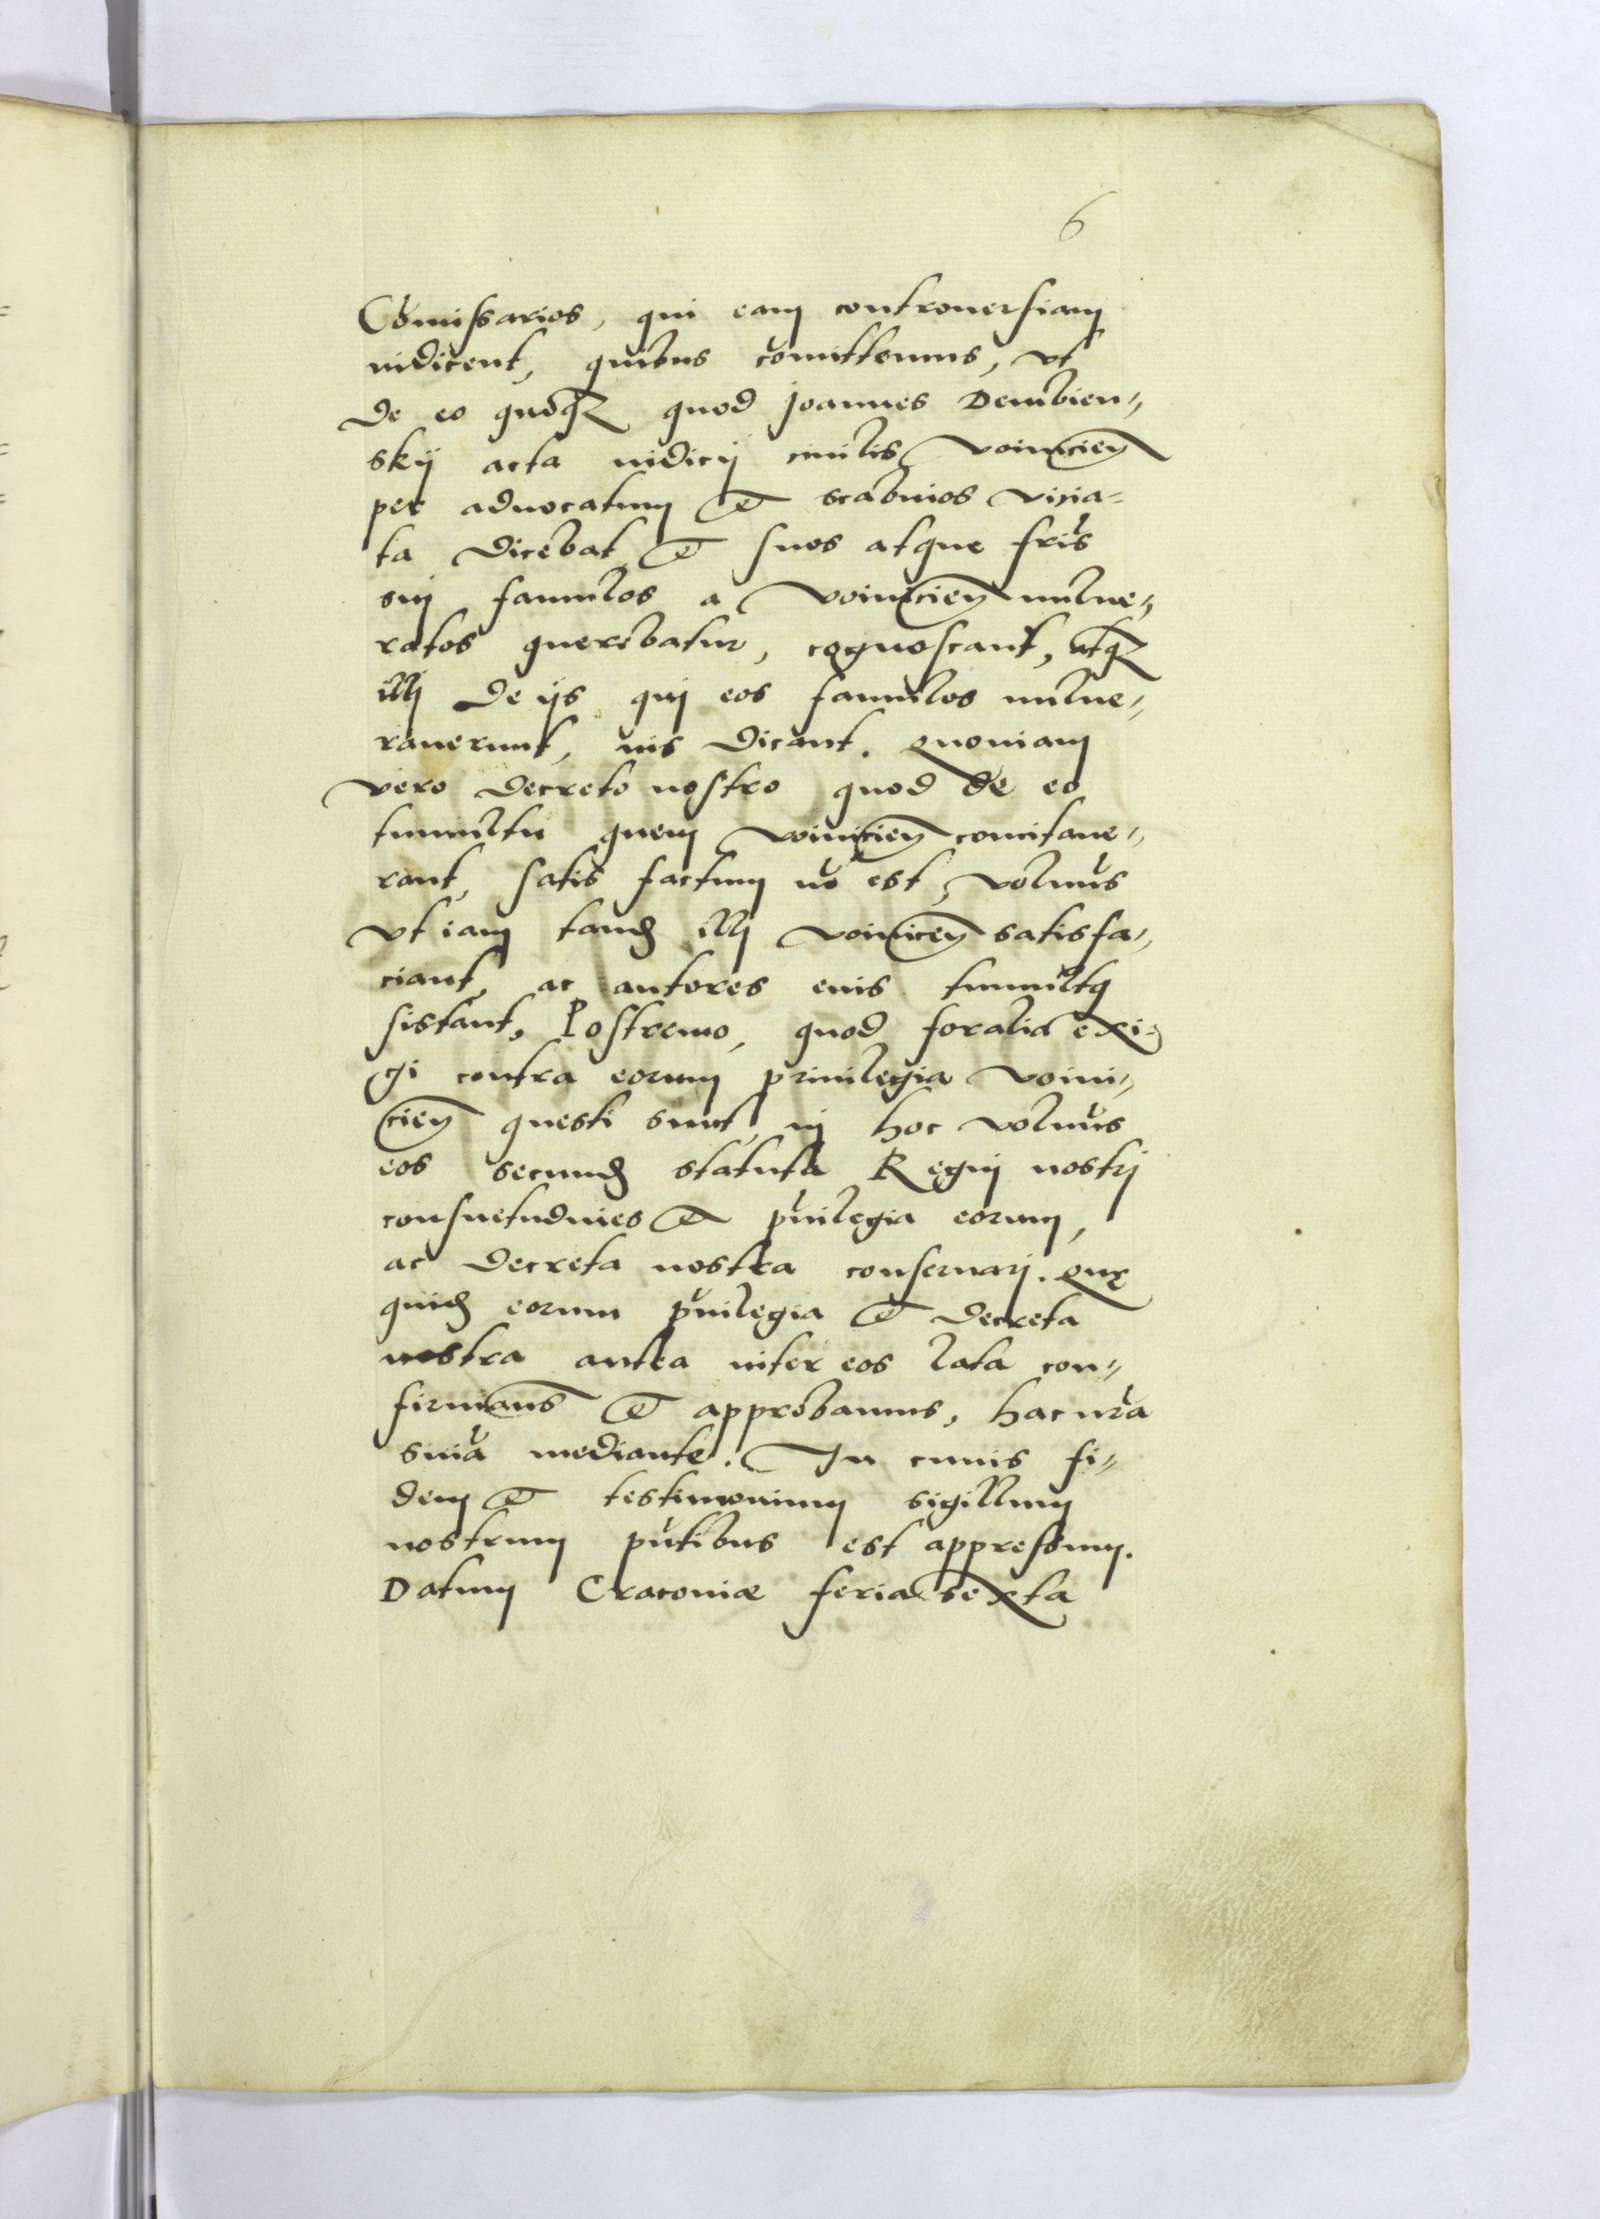 6
Comissarios, qui eam controuersiam
iudicent, quibus comittemus, vt
de eo quoqȝ quod Joannes Dembien=
skÿ acta iudicÿ ciuilis Voinicien
per aduocatum et scabinos vicia=
ta dicebat et suos atque fris
sui famulos a Voinicien uulne=
ratos querebatur, cognoscant, utqȝ
illi de ijs qui eos famulos uulne=
rauerunt, ius dicant. Quoniam
vero decreto nostro quod de eo
tumultu quem Voinicien concitaue=
rant, satis factum nō est, volmus
vt iam tandē illi Voinicen satisfa=
ciant, ac autores euis tumultq
sistant, Postremo, quod foralia exi=
gi contra eorum priuilegia Voini=
cien questi sunt, in hoc volmus
eos secundū statuta Regni nostri
consuetudines et puilegia eorum,
ac decreta nostra conseruari. Quę
quidē eorum puilegia et decreta
nostra antea inter eos lata con=
firmams et approbamus, hac nra
snia mediante. In cuius fi=
dem et testimonium sigillum
nostrum pntibus est appressum.
Datum Cracouiæ feria sexta